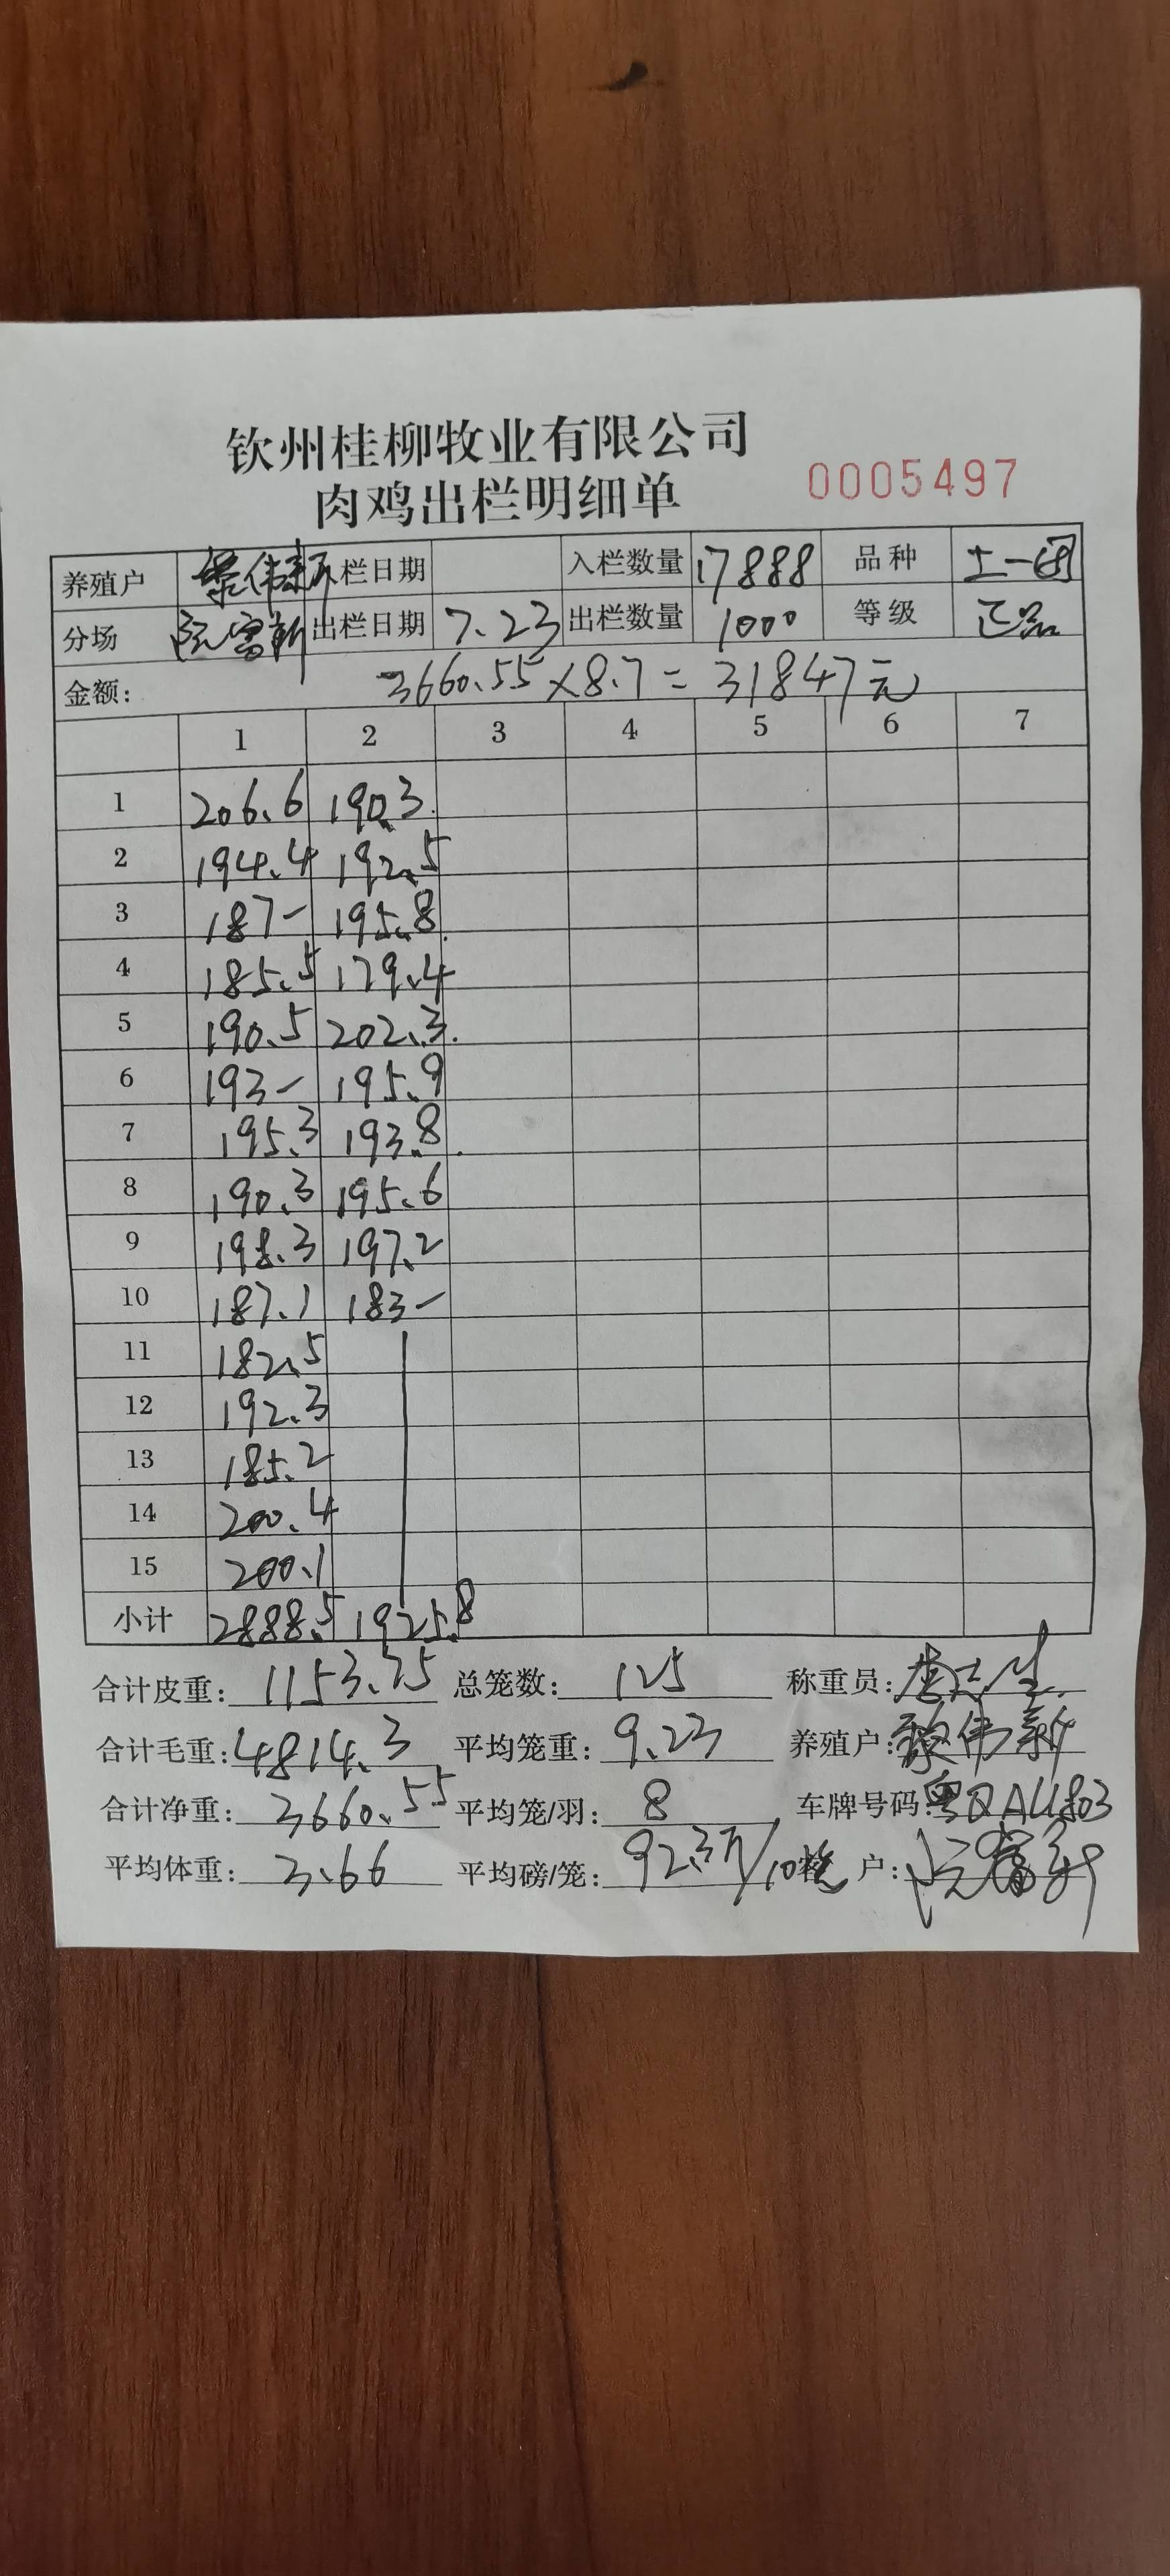 钦州桂柳牧业有限公司
肉鸡出栏明细单 0005497
养殖户 栏日期 入栏数量 17888 品种 土一
分场 阮富新 出栏日期 7.23 出栏数量 1000 等级 正品
金额: 3660.55×8.7=31847元
1 2 3 4 5 6 7
1 206.6 190.3
2 194.4 192.5
3 187- 195.8
4 185.5 179.4
5 190.5 202.3
6 193- 195.9
7 195.3 193.8
8 190.3 195.6
9 198.3 197.2
10 187.1 183-
11 182.5
12 192.3
13 185.2
14 200.4
15 200.1
小计 2888.5 1925.8
合计皮重: 1153.75 总笼数: 125 称重员:
合计毛重: 4814.3 平均笼重: 9.23 养殖户: 黎伟新
合计净重: 3660.55 平均笼/羽: 8 车牌号码:
平均体重: 3.66 平均磅/笼: 92.3斤/10笼 户: 阮富新